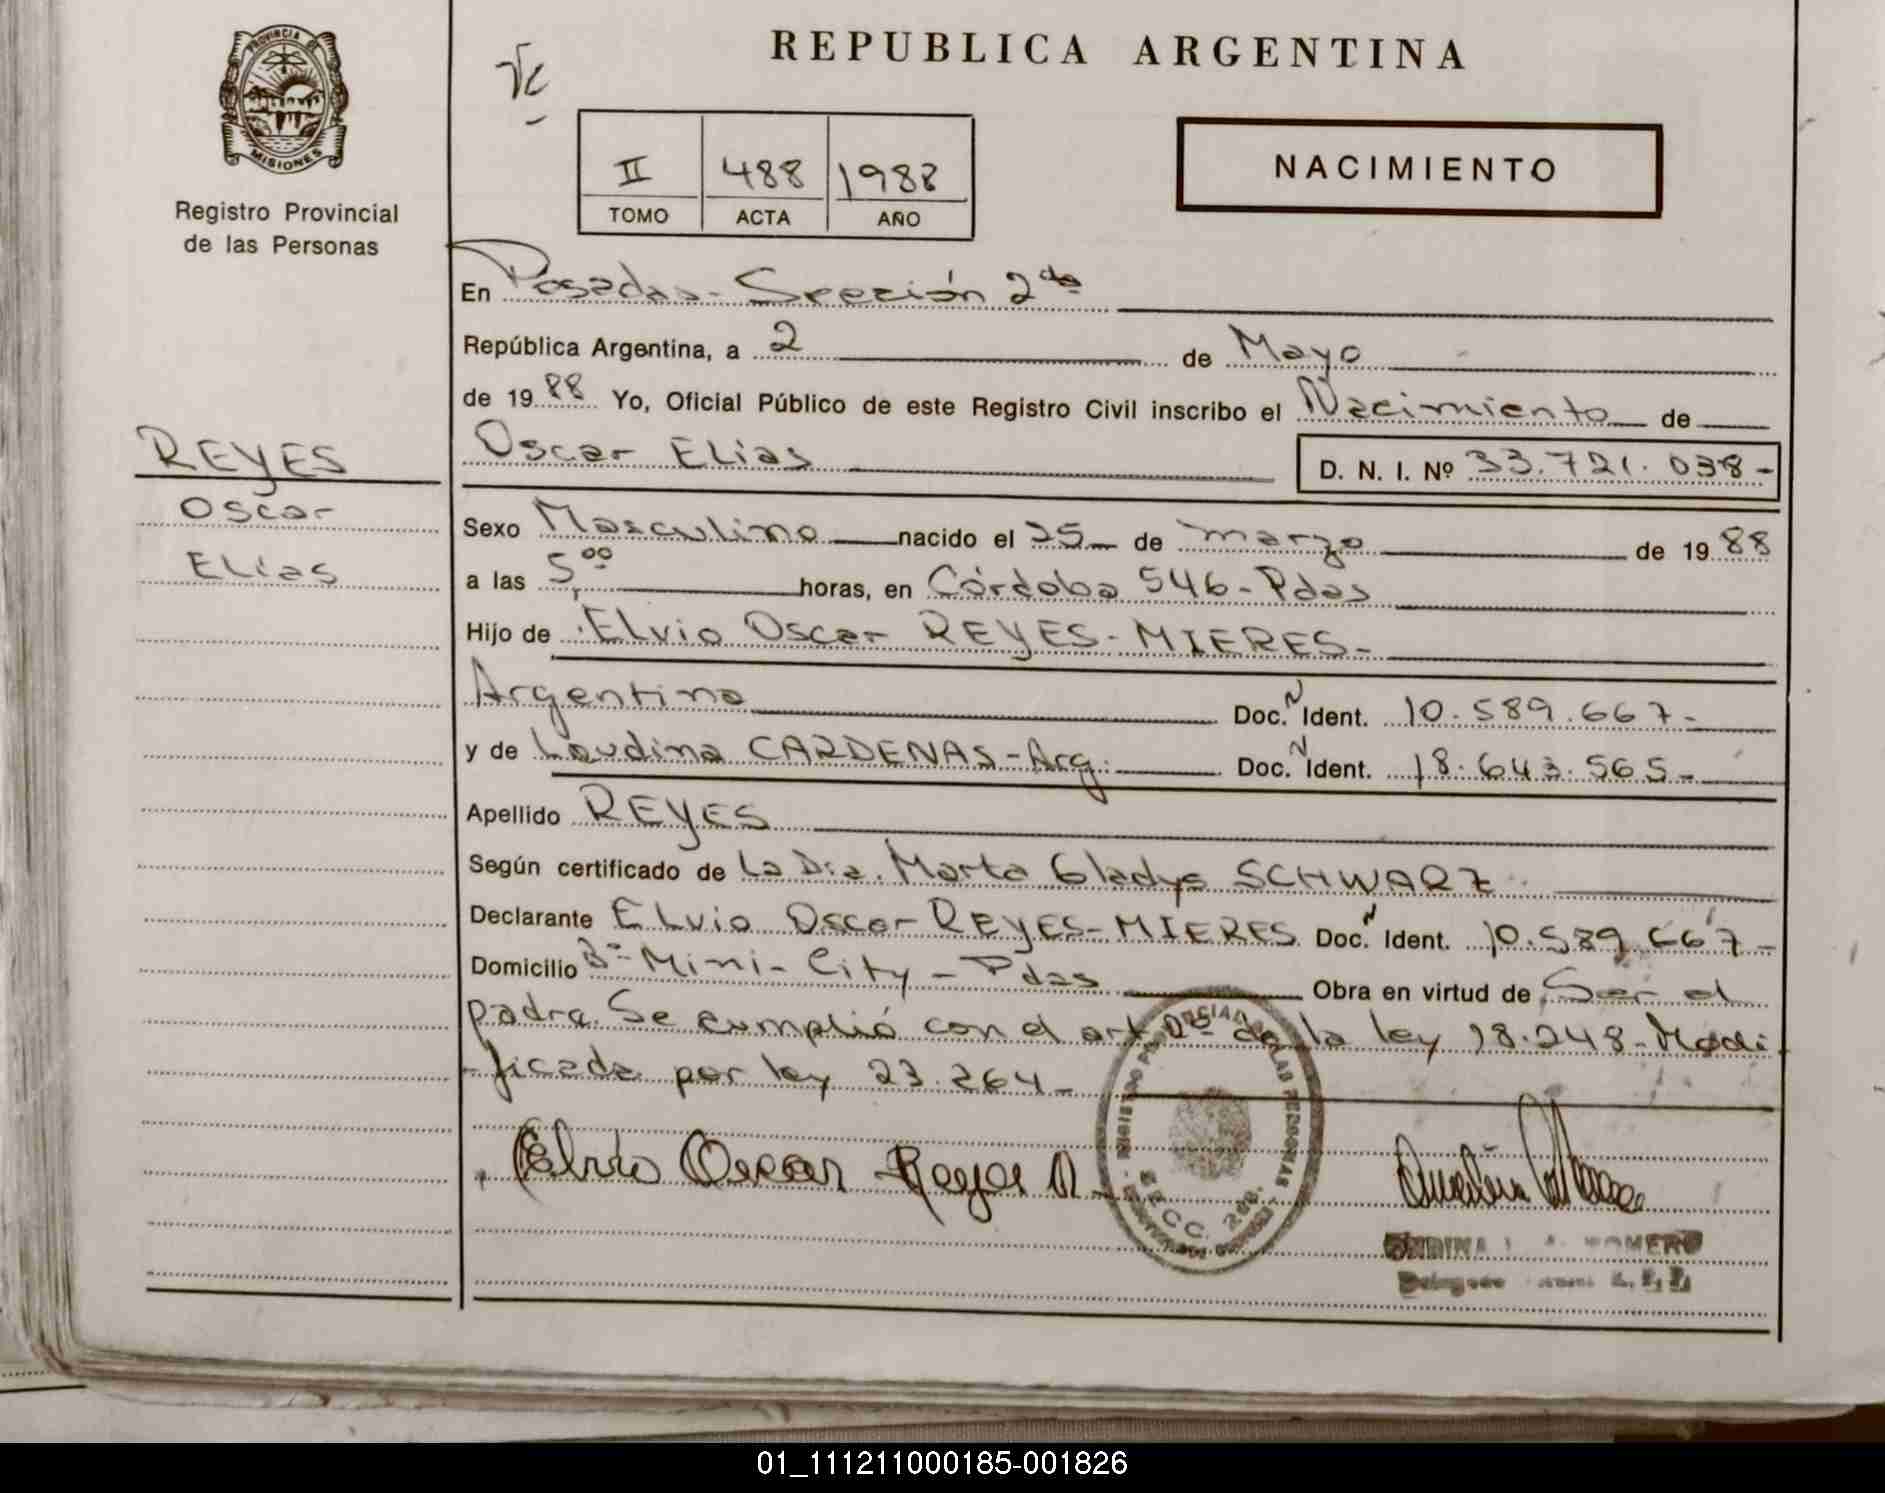 REPUBLICA ARGENTINA
PROVINCIA DE
MISIONES
Registro Provincial
de las Personas
II 488 1988
TOMO ACTA AÑO
NACIMIENTO
En Posadas - Sección 2da
República Argentina, a 2 de Mayo
de 1988 Yo, Oficial Público de este Registro Civil inscribo el Nacimiento de
REYES
Oscar
Elías
Oscar Elías D. N. I. Nº 33.721.038-
Sexo Masculino nacido el 25 de marzo de 1988
a las 5,00 horas, en Córdoba 546 - Pdas
Hijo de Elvio Oscar REYES-MIERES-
Argentino Doc. N Ident. 10.589.667-
y de Laudina CARDENAS - Arg. Doc. N Ident. 18.643.565-
Apellido REYES
Según certificado de La Dra. Marta Gladys SCHWARZ
Declarante Elvio Oscar REYES-MIERES Doc. N Ident. 10.589.667-
Domicilio Bº Mini-City - Pdas Obra en virtud de Ser el
padre. Se cumplió con el art 2º de la ley 18.248-Modi
ficada por ley 23.264-
Elvio Oscar Reyes M
ROMERO
01_111211000185-001826